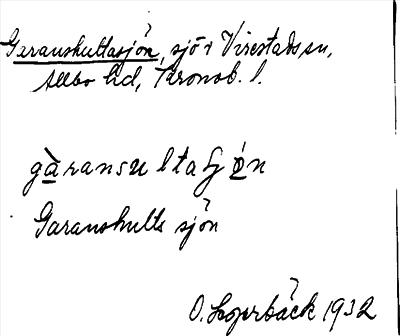 Geranshultasjön, sjö i Virestads sn,
Allbo hd, Kronob. l.
gàransultaʃøn
Garanshults sjön
O. Lagerbäck 1932